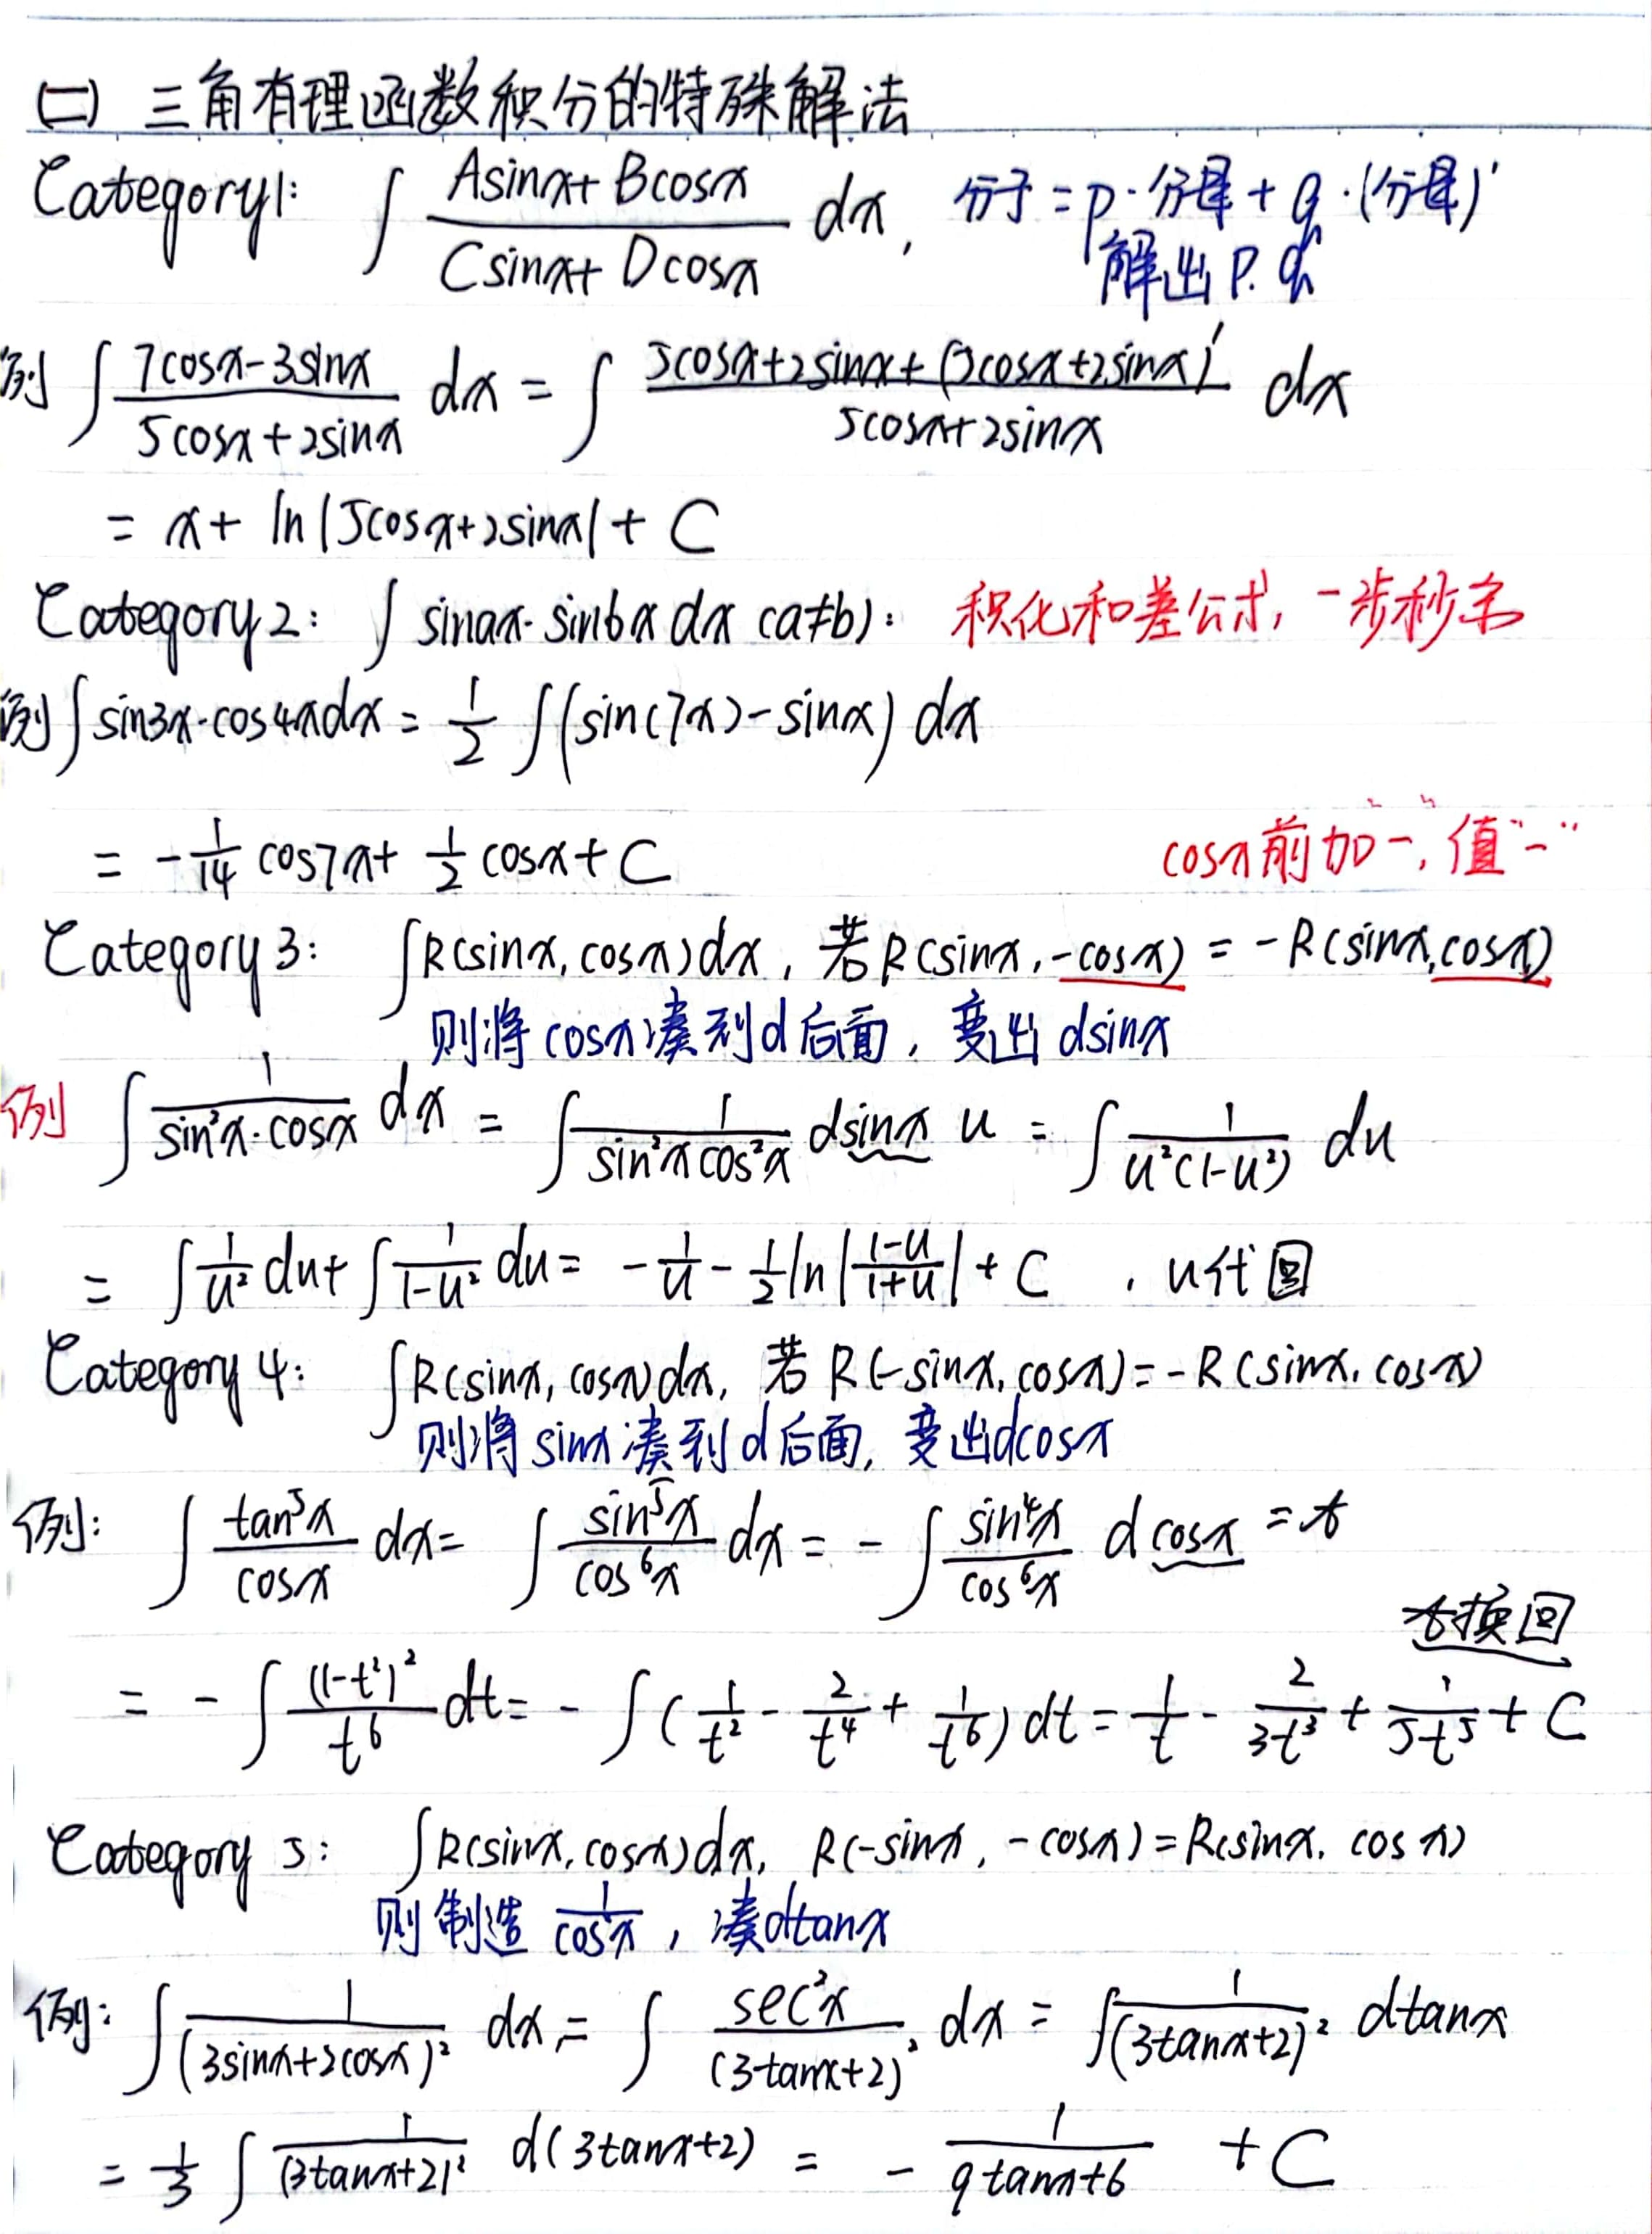 (二) 三角有理函数积分的特殊解法
Category1: ∫ (Asinx+Bcosx)/(Csinx+Dcosx) dx, 分子=p·分母+q·(分母)'
解出p.q
例 ∫ (7cosx-3sinx)/(5cosx+2sinx) dx = ∫ (5cosx+2sinx+(5cosx+2sinx)')/(5cosx+2sinx) dx
= x+ ln|5cosx+2sinx|+ C
Category2: ∫ sinax·sinbx dx (a≠b): 积化和差公式, 一步秒杀
例 ∫sin3x·cos4xdx = 1/2 ∫(sin(7x)-sinx) dx
= -1/14 cos7x+ 1/2 cosx+C
cosx前加-, 值"-"
Category 3: ∫R(sinx, cosx)dx, 若R(sinx, -cosx) = -R(sinx, cosx)
则将cosx凑到d后面, 变出dsinx
例 ∫ 1/(sin²x·cosx) dx = ∫ 1/(sin²xcos²x) dsinx u = ∫ 1/(u²(1-u²)) du
= ∫ 1/u² du+ ∫ 1/(1-u²) du = -1/u - 1/2 ln|(1-u)/(1+u)| + C , u代回
Category 4: ∫R(sinx, cosx)dx, 若 R(-sinx, cosx)=-R(sinx, cosx)
则将sinx凑到d后面, 变出dcosx
例: ∫ tan⁵x/cosx dx= ∫ sin⁵x/cos⁶x dx = -∫ sin⁴x/cos⁶x dcosx =t
t换回
= -∫ (1-t²)²/t⁶ dt= -∫(1/t² - 2/t⁴ + 1/t⁶)dt = 1/t - 2/3t³ + 1/5t⁵ + C
Category 5: ∫R(sinx, cosx)dx, R(-sinx, -cosx)=R(sinx, cosx)
则制造 1/cos²x, 凑dtanx
例: ∫ 1/(3sinx+2cosx)² dx = ∫ sec²x/(3tanx+2)² dx = ∫ 1/(3tanx+2)² dtanx
= 1/3 ∫ 1/(3tanx+2)² d(3tanx+2) = - 1/(9tanx+6) + C